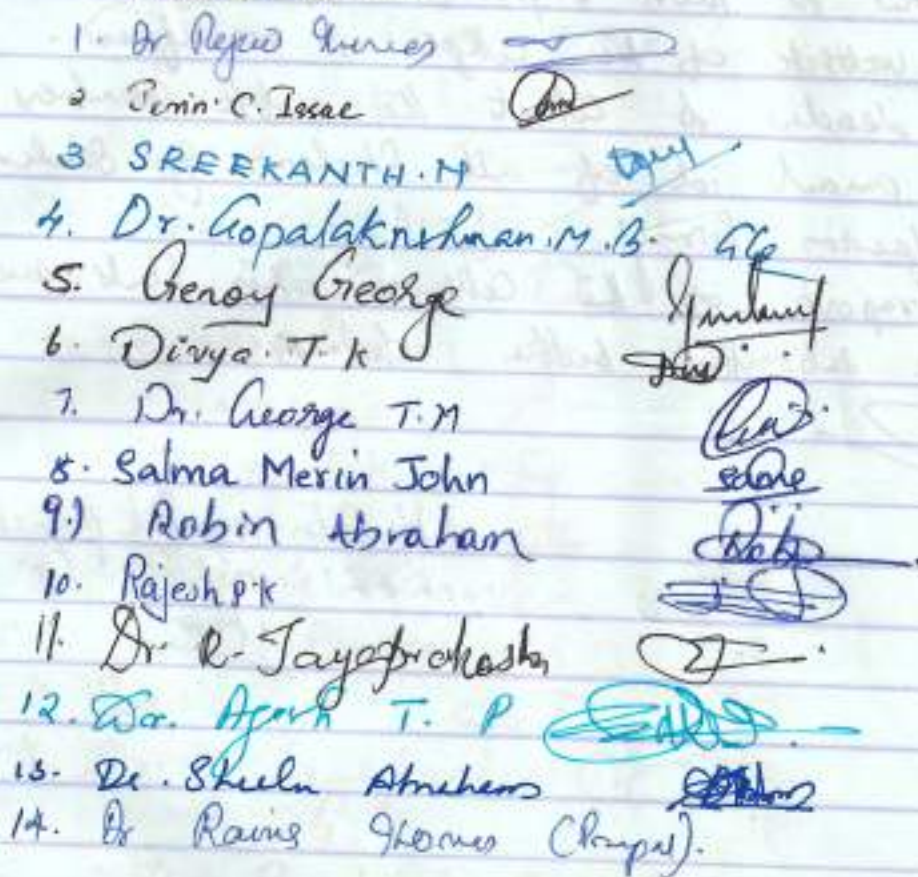 1. Dr Rejeev Thomas
2 Jenin C. Issac
3 SREEKANTH.N
4. Dr. Gopalakrishnan.M.B.
5. Genoy George
6. Divya. T. K
7. Dr. George T.M
8. Salma Merin John
9.) Robin Abraham
10. Rajesh P.K
11. Dr. R. Jayaprakash
12. Dr. T. P
13. De. Sheela Abraham
14. Dr Thomas